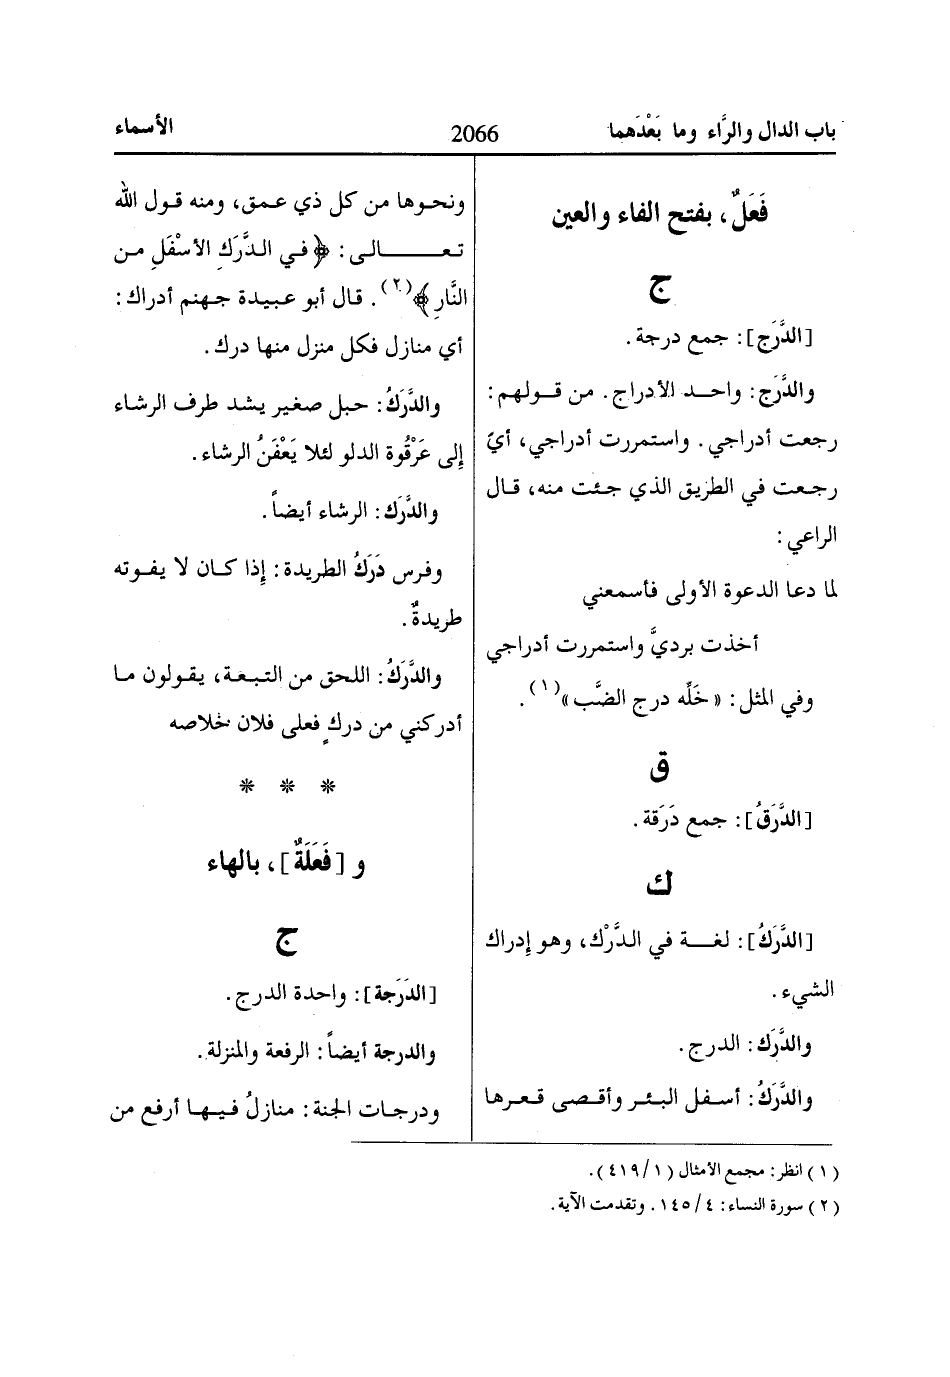 باب الدال والرَّاء وما بَعْدَهما
2066
الأسماء
فَعَلٌ، بفتح الفاء والعين
ج
[الدَّرَج]: جمع درجة.
والدَّرَج: واحد الأدراج. من قولهم:
رجعت أدراجي. واستمررت أدراجي، أيْ
رجعت في الطريق الذي جئت منه، قال
الراعي:
لما دعا الدعوة الأولى فأسمعني
أخذت برديَّ واستمررت أدراجي
وفي المثل: «خَلِّه درج الضَّب»(١).
ق
[الدَّرَقُ]: جمع دَرَقة.
ك
[الدَّرَكُ]: لغة في الدَّرْك، وهو إدراك
الشيء.
والدَّرَك: الدرج.
والدَّرَكُ: أسفل البئر وأقصى قعرها
ونحوها من كل ذي عمق، ومنه قول الله
تعالى: ﴿في الدَّرَكِ الأسْفَلِ من
النَّارِ﴾(٢). قال أبو عبيدة جهنم أدراك:
أي منازل فكل منزل منها درك.
والدَّرَكُ: حبل صغير يشد طرف الرشاء
إلى عَرْقُوة الدلو لئلا يَعْفَنُ الرشاء.
والدَّرَك: الرشاء أيضاً.
وفرس دَرَكُ الطريدة: إذا كان لا يفوته
طريدةٌ.
والدَّرَكُ: اللحق من التبعة، يقولون ما
أدركني من دركٍ فعلى فلان خلاصه
* * *
و [فَعَلَةٌ]، بالهاء
ج
[الدَرَجة]: واحدة الدرج.
والدرجة أيضاً: الرفعة والمنزلة.
ودرجات الجنة: منازلُ فيها أرفع من
(١) انظر: مجمع الأمثال (٤١٩/١).
(٢) سورة النساء: ١٤٥/٤. وتقدمت الآية.